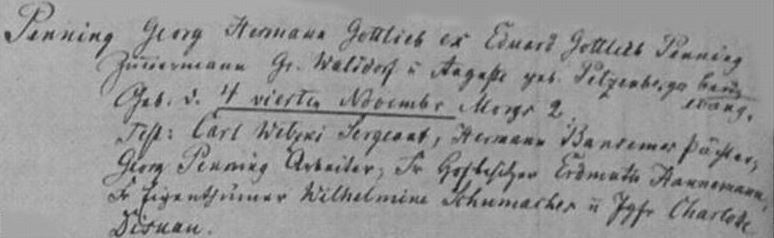 Penning Georg Hermann Gottlieb ex Eduard Gottlieb Penning
Zimmermann Gr. Walddorf u Auguste geb. Petzenberger beide
evang.
Geb. d. 4 vierten November Morgs 2.
Test: Carl Welzki Sergeant, Hermann Bandemer Pächter,
Georg Penning Arbeiter, Fr Hofbesitzer Erdmuth Hannemann,
Fr Eigenthümer Wilhelmine Schumacher u Jgfr Charlotte
Dirnau.